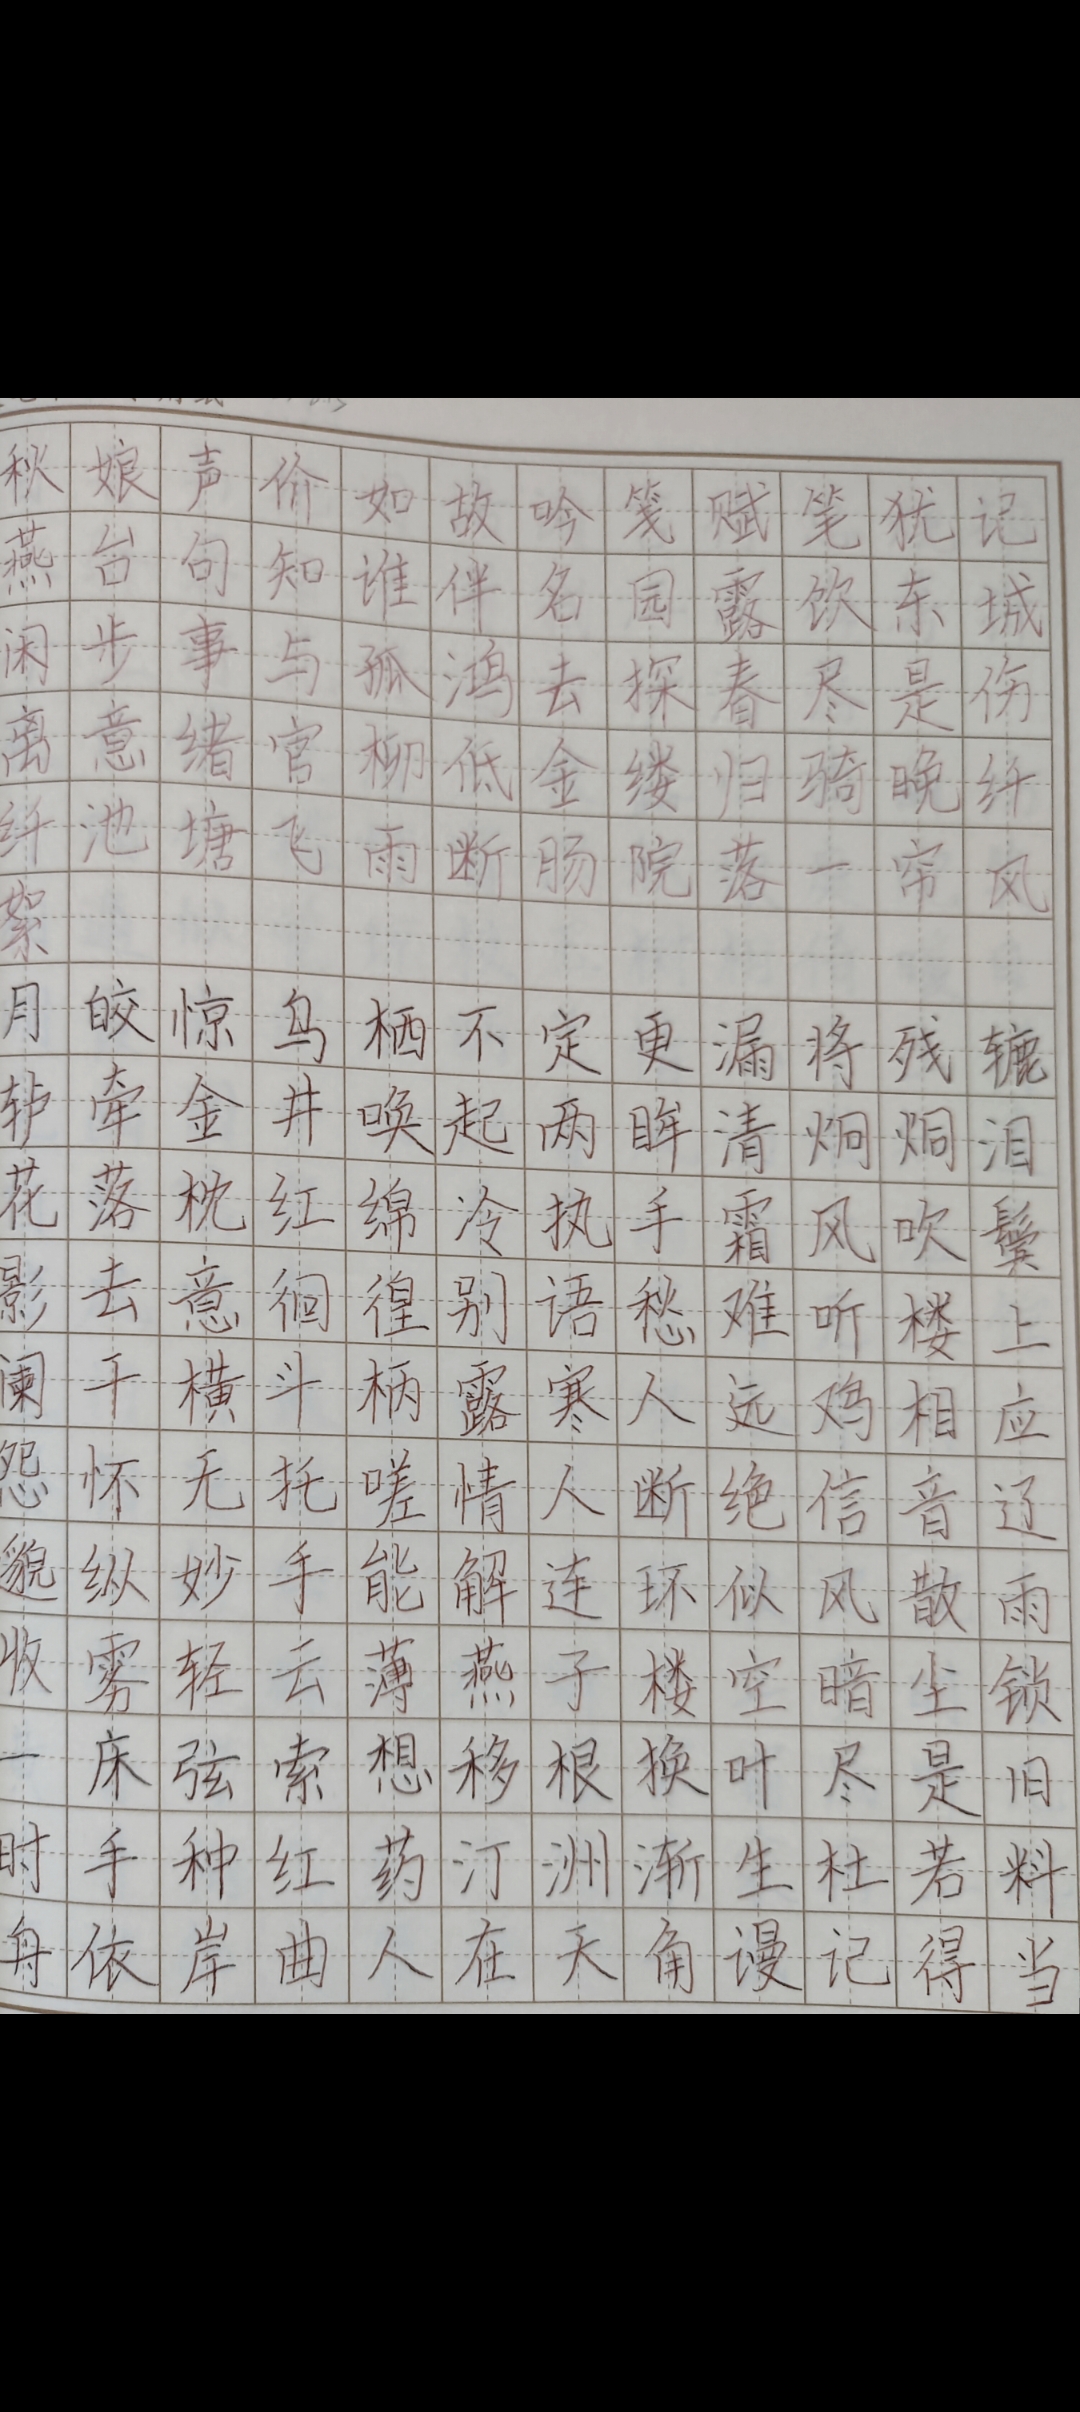 秋娘声价如故吟笺赋笔犹记
燕台句知谁伴名园露饮东城
闲步事与孤鸿去探春尽是伤
离意绪官柳低金缕归骑晚纤
纤池塘飞雨断肠院落一帘风
絮
月皎惊乌栖不定更漏将残辘
轳牵金井唤起两眸清炯炯泪
花落枕红绵冷执手霜风吹鬓
影去意徊徨别语愁难听楼上
阑干横斗柄露寒人远鸡相应
怨怀无托嗟情人断绝信音辽
邈纵妙手能解连环似风散雨
收雾轻云薄燕子楼空暗尘锁
一床弦索想移根换叶尽是旧
时手种红药汀洲渐生杜若料
舟依岸曲人在天角谩记得当